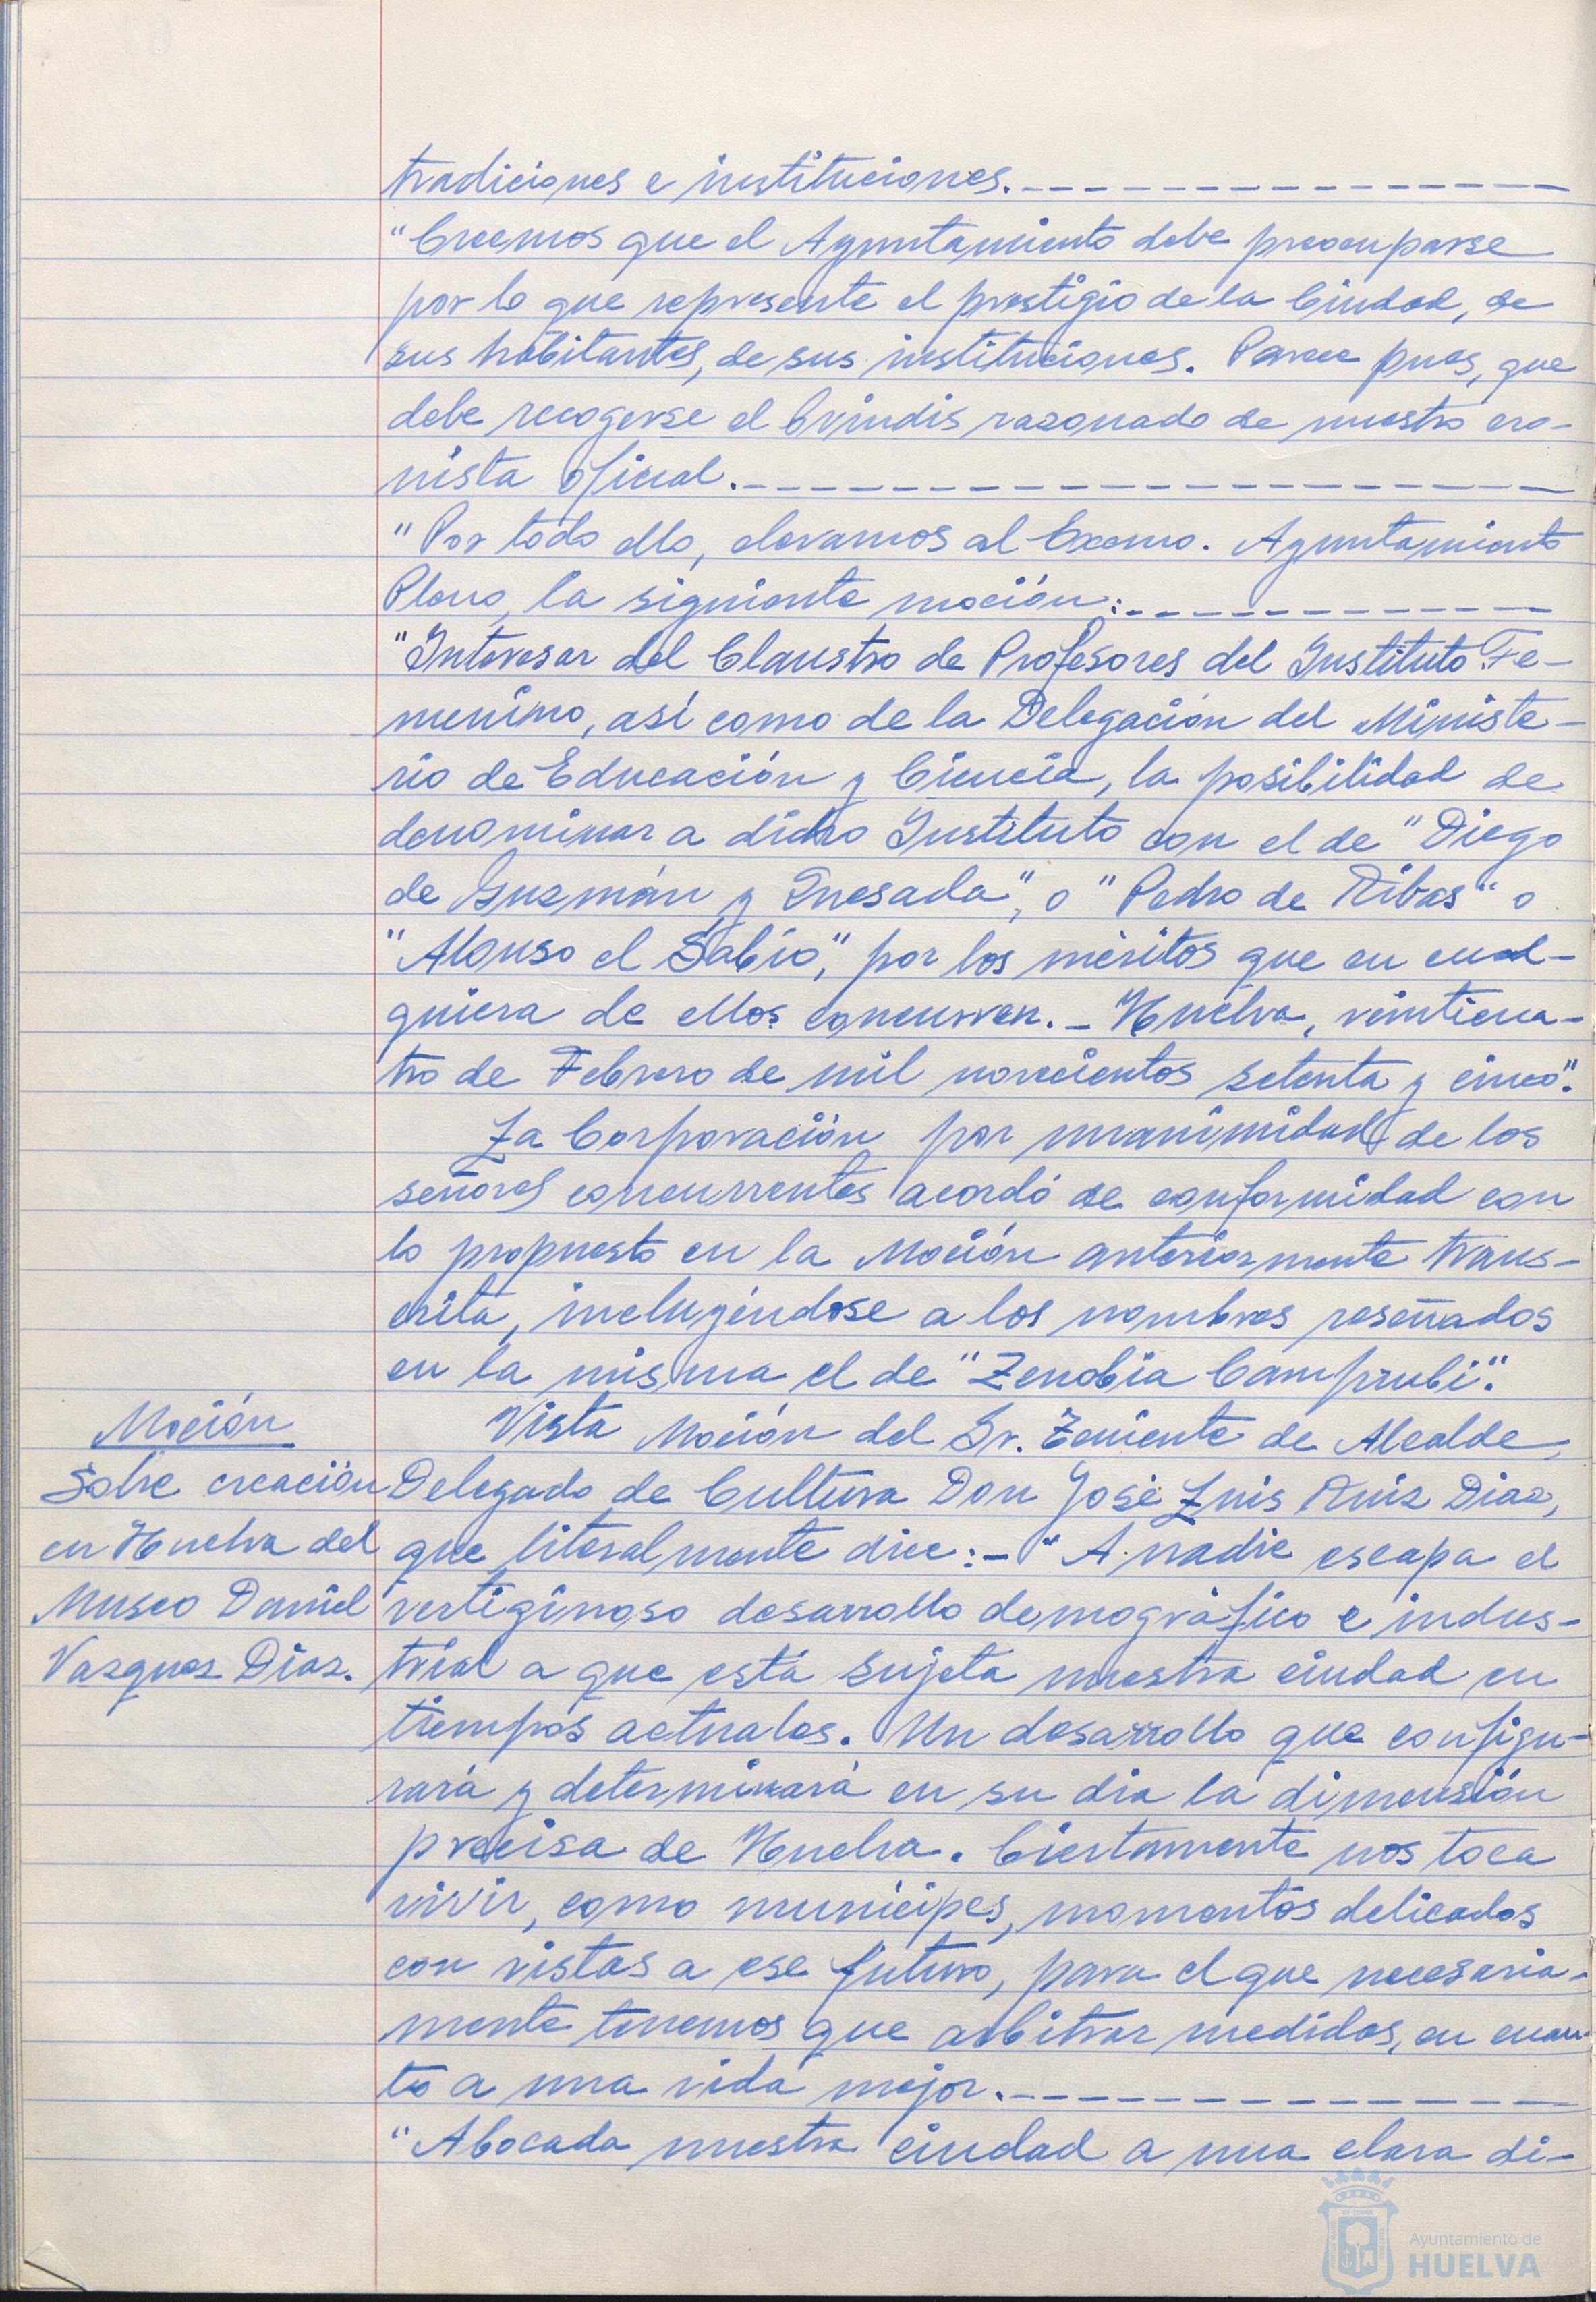 tradiciones e instituciones.------------------
"Creemos que el Ayuntamiento debe preocuparse
por lo que represente el prestigio de la Ciudad, de
sus habitantes, de sus instituciones. Parece pues, que
debe recogerse el brindis razonado de nuestro cro-
nista oficial.------------------
"Por todo ello, elevamos al Excmo. Ayuntamiento
Pleno, la siguiente moción:------------
"Interesar del Claustro de Profesores del Instituto Fe-
menino, así como de la Delegación del Ministe-
rio de Educación y Ciencia, la posibilidad de
denominar a dicho Instituto con el de "Diego
de Guzmán y Quesada", o "Pedro de Ribas" o
"Alonso el Sabio", por los méritos que en cual-
quiera de ellos concurren.- Huelva, veinticua-
tro de Febrero de mil novecientos setenta y cinco".
La Corporación por unanimidad de los
señores concurrentes acordó de conformidad con
lo propuesto en la Moción anteriormente trans-
crita, incluyéndose a los nombres reseñados
en la misma el de "Zenobia Camprubi".
Moción
Sobre creación
en Huelva del
Museo Daniel
Vazquez Diaz.
Vista Moción del Sr. Teniente de Alcalde,
Delegado de Cultura Don José Luis Ruiz Diaz,
que literalmente dice:- "A nadie escapa el
vertiginoso desarrollo demográfico e indus-
trial a que está sujeta nuestra ciudad en
tiempos actuales. Un desarrollo que configu-
rará y determinará en su dia la dimensión
precisa de Huelva. Ciertamente nos toca
vivir, como munícipes, momentos delicados
con vistas a ese futuro, para el que necesaria-
mente tenemos que arbitrar medidas, en cuan-
to a una vida mejor.------------------
"Abocada nuestra ciudad a una clara di-
Ayuntamiento de
HUELVA